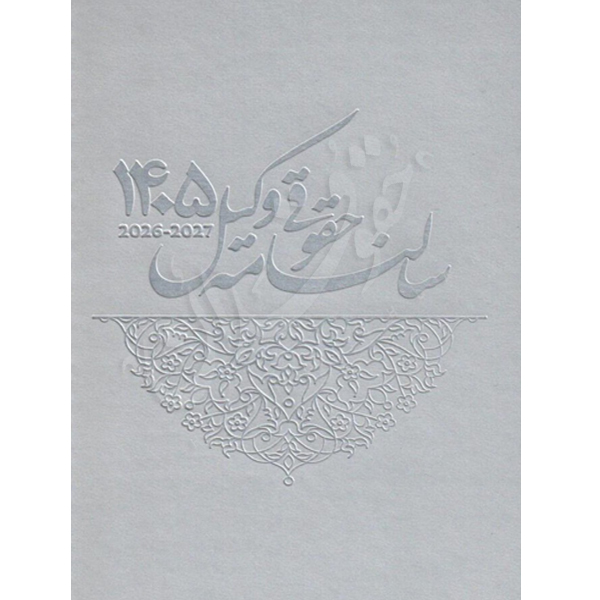 سالنامه حقوقی وکیل ۱۴۰۵
2026-2027